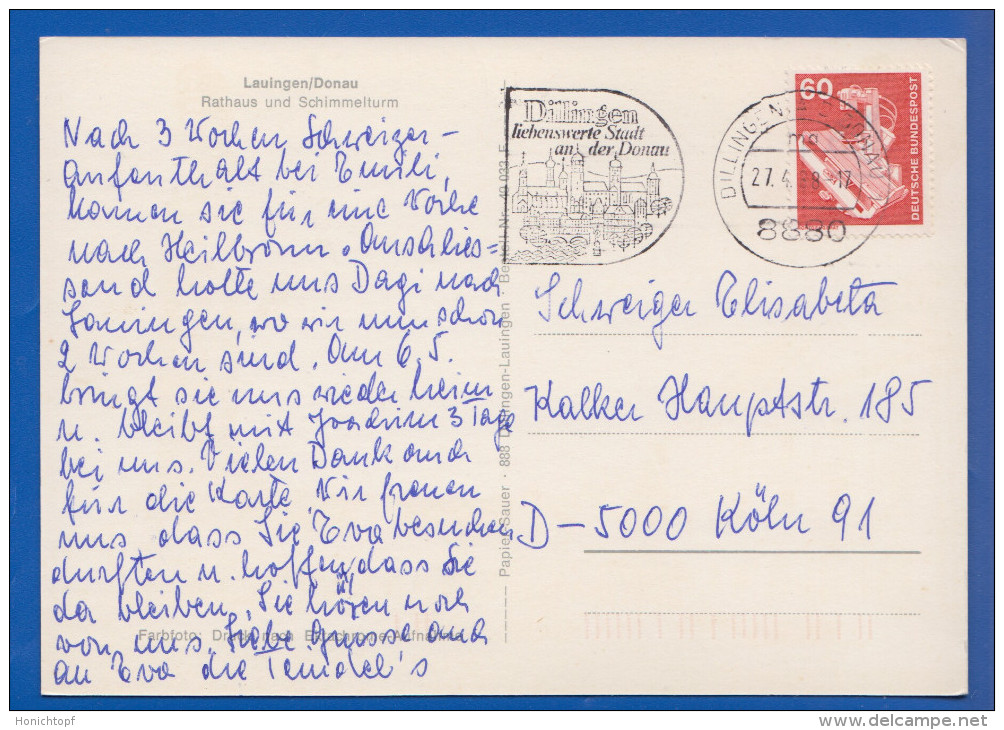 Lauingen/Donau
Rathaus und Schimmelturm
Nach 3 Wochen Schweizer-
aufenthalt bei Emili,
kamen sie für eine Woche
nach Heilbronn. Anschlies=
send holte uns Dagi nach
Lauingen, wo wir nun schon
2 Wochen sind. Am 6.5.
bringt sie uns wieder heim
u. bleibt mit Joachim 3 Tage
bei uns. Vielen Dank auch
für die Karte. Wir freuen
uns dass Sie Eva besuchen
durften u. hoffen, dass Sie
da bleiben. Sie hören noch
von uns. Liebe Grüsse, auch
an Eva die Tendel's
Farbfoto: Druck nach Ektachrome-Aufnahme
Papier-Sauer · 888 Dillingen-Lauingen · Bestell-Nr. 49 033 F
Dillingen
liebenswerte Stadt
an der Donau
DILLINGEN A D DONAU
27.4. -17
8880
60
DEUTSCHE BUNDESPOST
Schweiger Elisabeta
Kalker Hauptstr. 185
D-5000 Köln 91
Honichtopf
www.delcampe.net